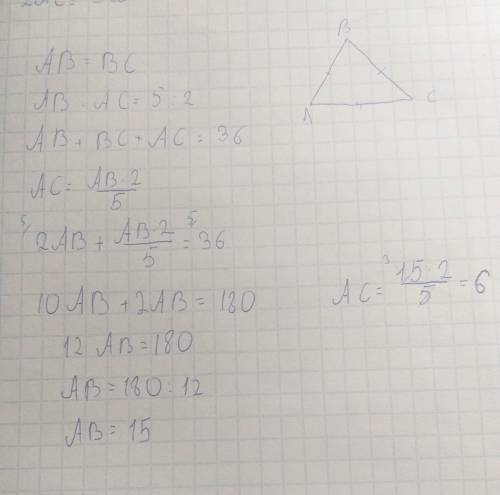 AB = BC
AB : AC = 5 : 2
AB + BC + AC = 36
AC = AB · 2 / 5
2AB + AB · 2 / 5 = 36
10AB + 2AB = 180
12AB = 180
AB = 180 : 12
AB = 15
B
A
C
AC = 15 · 2 / 5 = 6